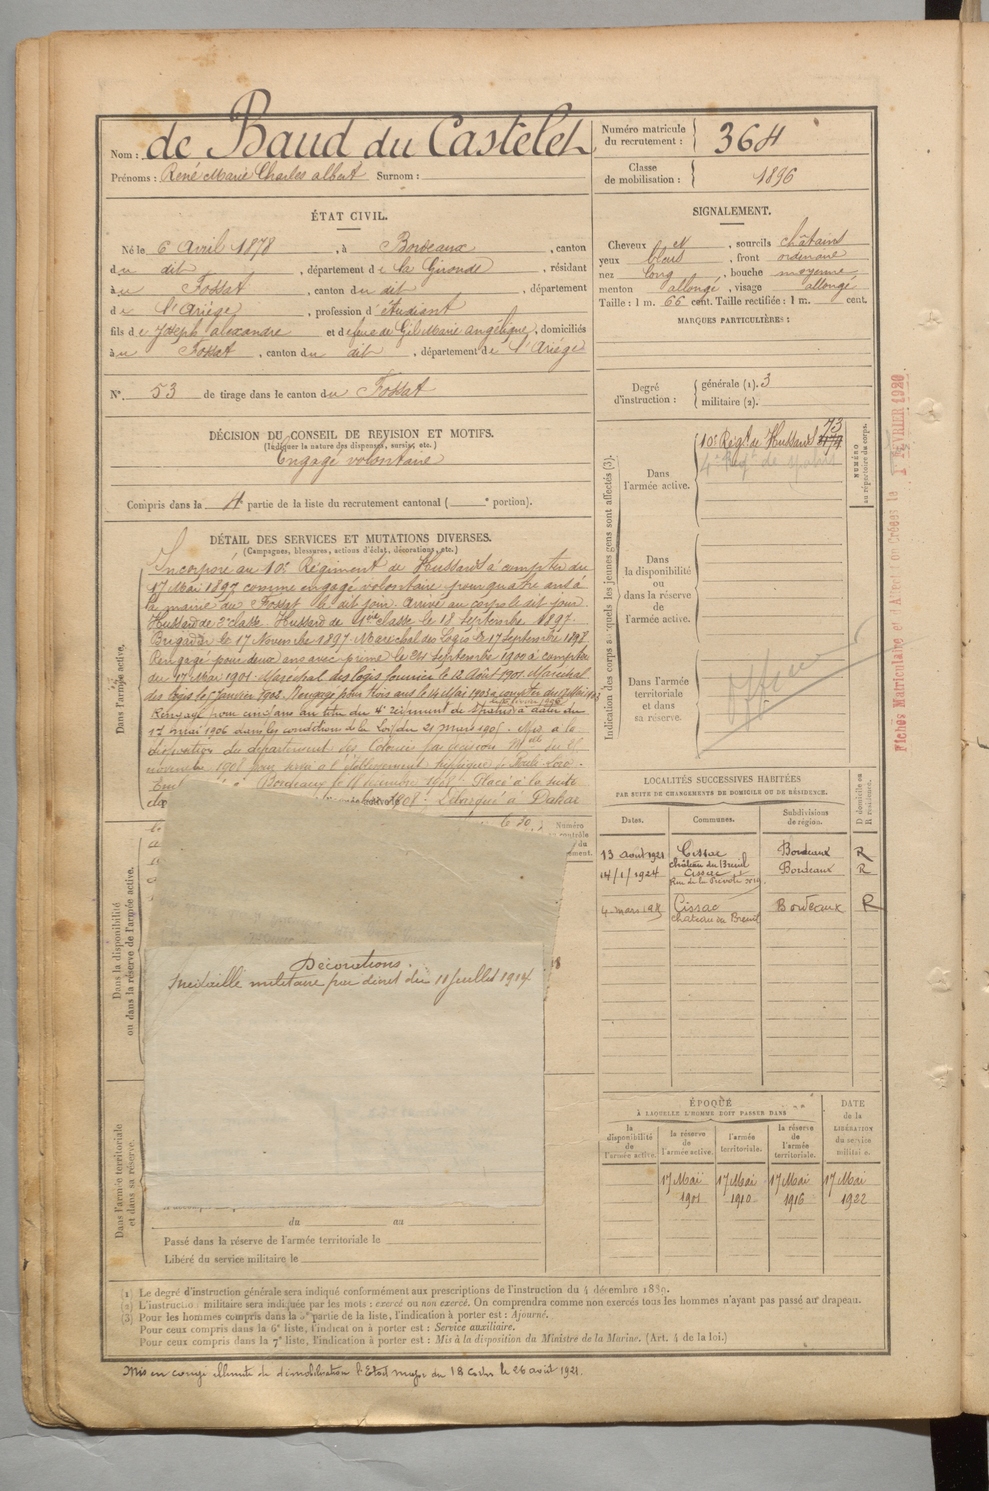 Nom : de Baud du Castelet
Prénoms : René Marie Charles albert Surnom :
Numéro matricule du recrutement : 364
Classe de mobilisation : 1896
ÉTAT CIVIL.
Né le 6 Avril 1878, à Bordeaux, canton
du dit, département de la Gironde, résidant
à u Fossat, canton du dit, département
de l'Ariège, profession d'étudiant
fils de Joseph alexandre et de feue de Gil Marie angélique, domiciliés
à u Fossat, canton du dit, département de l'Ariège
N° 53 de tirage dans le canton du Fossat
SIGNALEMENT.
Cheveux N, sourcils châtains
yeux bleus, front ordinaire
nez long, bouche moyenne
menton allongé, visage allongé
Taille : 1 m. 66 cent. Taille rectifiée : 1 m. cent.
MARQUES PARTICULIÈRES :
Degré d'instruction : générale (1). 3
militaire (2).
DÉCISION DU CONSEIL DE REVISION ET MOTIFS.
(Indiquer la nature des dispenses, sursis, etc.)
Engagé volontaire
Compris dans la 4e partie de la liste du recrutement cantonal ( e portion).
DÉTAIL DES SERVICES ET MUTATIONS DIVERSES.
(Campagnes, blessures, actions d'éclat, décorations, etc.)
Dans l'armée active.
Incorporé au 10e Régiment de Hussards à compter du
17 Mai 1897 comme engagé volontaire pour quatre ans à
la mairie du Fossat le dit jour. Arrivé au corps le dit jour
Hussard de 2e classe. Hussard de 1ère classe le 18 Septembre 1897.
Brigadier le 17 Novembre 1897. Maréchal des Logis le 17 Septembre 1898.
Rengagé pour deux ans avec prime le 24 Septembre 1900 à compter
du 17 Mai 1901. Maréchal des logis fourrier le 12 Août 1901. Maréchal
des logis le 1 Janvier 1903. Rengagé pour trois ans le 14 Mai 1903 à compter du 17 Mai 1903
Rengagé pour cinq ans au titre du 4e régiment de Spahis à dater du
17 mai 1906 dans les conditions de la Loi du 21 mars 1905. Mis à la
disposition du département des Colonies par décision Mlle du
novembre 1908
Bordeaux le 1908. Placé à la suite
1908. Débarqué à Dakar
le 20
Indication des corps auxquels les jeunes gens sont affectés (3).
NUMÉRO au répertoire du corps.
Dans l'armée active.
10e Régt de Hussards 73
4e Régt de Spahis
Dans la disponibilité ou dans la réserve de l'armée active.
Dans l'armée territoriale et dans sa réserve.
Officier
Fiches Matriculaire et d'Affectation Créées le 1er FÉVRIER 1920.
LOCALITÉS SUCCESSIVES HABITÉES
PAR SUITE DE CHANGEMENTS DE DOMICILE OU DE RÉSIDENCE.
Dates. Communes. Subdivisions de région. D domicile ou R résidence.
13 août 1921 Cissac château du Breuil Bordeaux R
14/1/1924 Cissac Bordeaux R
4 mars Cissac chateau du Breuil Bordeaux R
Dans la disponibilité ou dans la réserve de l'armée active.
Décorations.
Médaille militaire par décret du 11 Juillet 1914
ÉPOQUE
À LAQUELLE L'HOMME DOIT PASSER DANS
la disponibilité de l'armée active. la réserve de l'armée active. l'armée territoriale. la réserve de l'armée territoriale. DATE de la LIBÉRATION du service militaire.
17 Mai 1901 17 Mai 1910 17 Mai 1916 17 Mai 1922
Dans l'armée territoriale et dans sa réserve.
du au
Passé dans la réserve de l'armée territoriale le
Libéré du service militaire le
(1) Le degré d'instruction générale sera indiqué conformément aux prescriptions de l'instruction du 4 décembre 1889.
(2) L'instruction militaire sera indiquée par les mots : exercé ou non exercé. On comprendra comme non exercés tous les hommes n'ayant pas passé au drapeau.
(3) Pour les hommes compris dans la 5e partie de la liste, l'indication à porter est : Ajourné.
Pour ceux compris dans la 6e liste, l'indication à porter est : Service auxiliaire.
Pour ceux compris dans la 7e liste, l'indication à porter est : Mis à la disposition du Ministre de la Marine. (Art. 4 de la loi.)
Mis en congé illimité de démobilisation Etat major du 18 Corps le 26 août 1921.